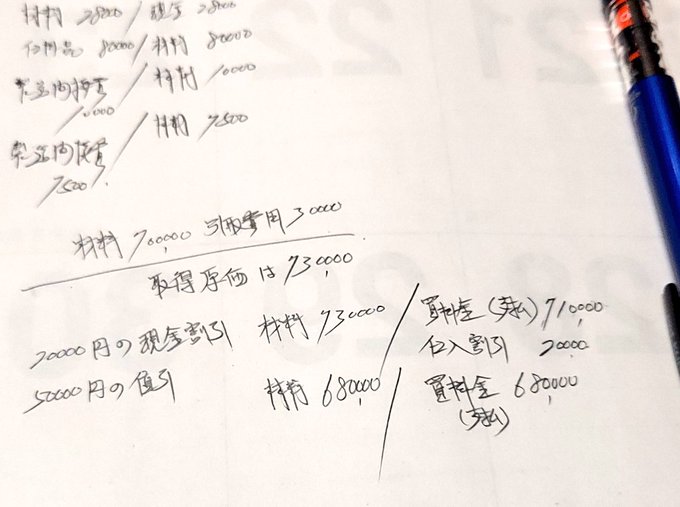 材料 28000 / 現金 28000
仕掛品 80000 / 材料 80000
製造間接費 / 材料 10000
10000
製造間接費 / 材料 7500
7500
材料 700,000 引取費用 30000
取得原価は730,000
20000円の現金割引 材料 730000 / 買料金(未払) 710,000
仕入割引 20000
50000円の値引 材料 680000 / 買料金 680,000
(未払)